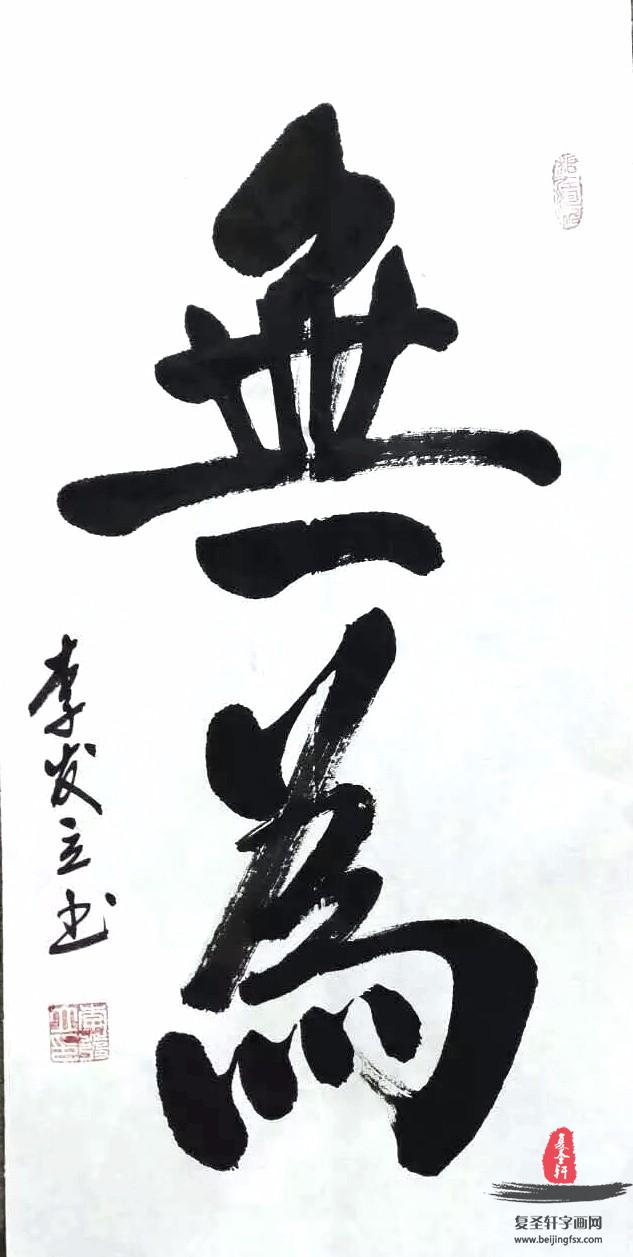 無為
李发立书
复圣轩
复圣轩字画网
www.beijingfsx.com